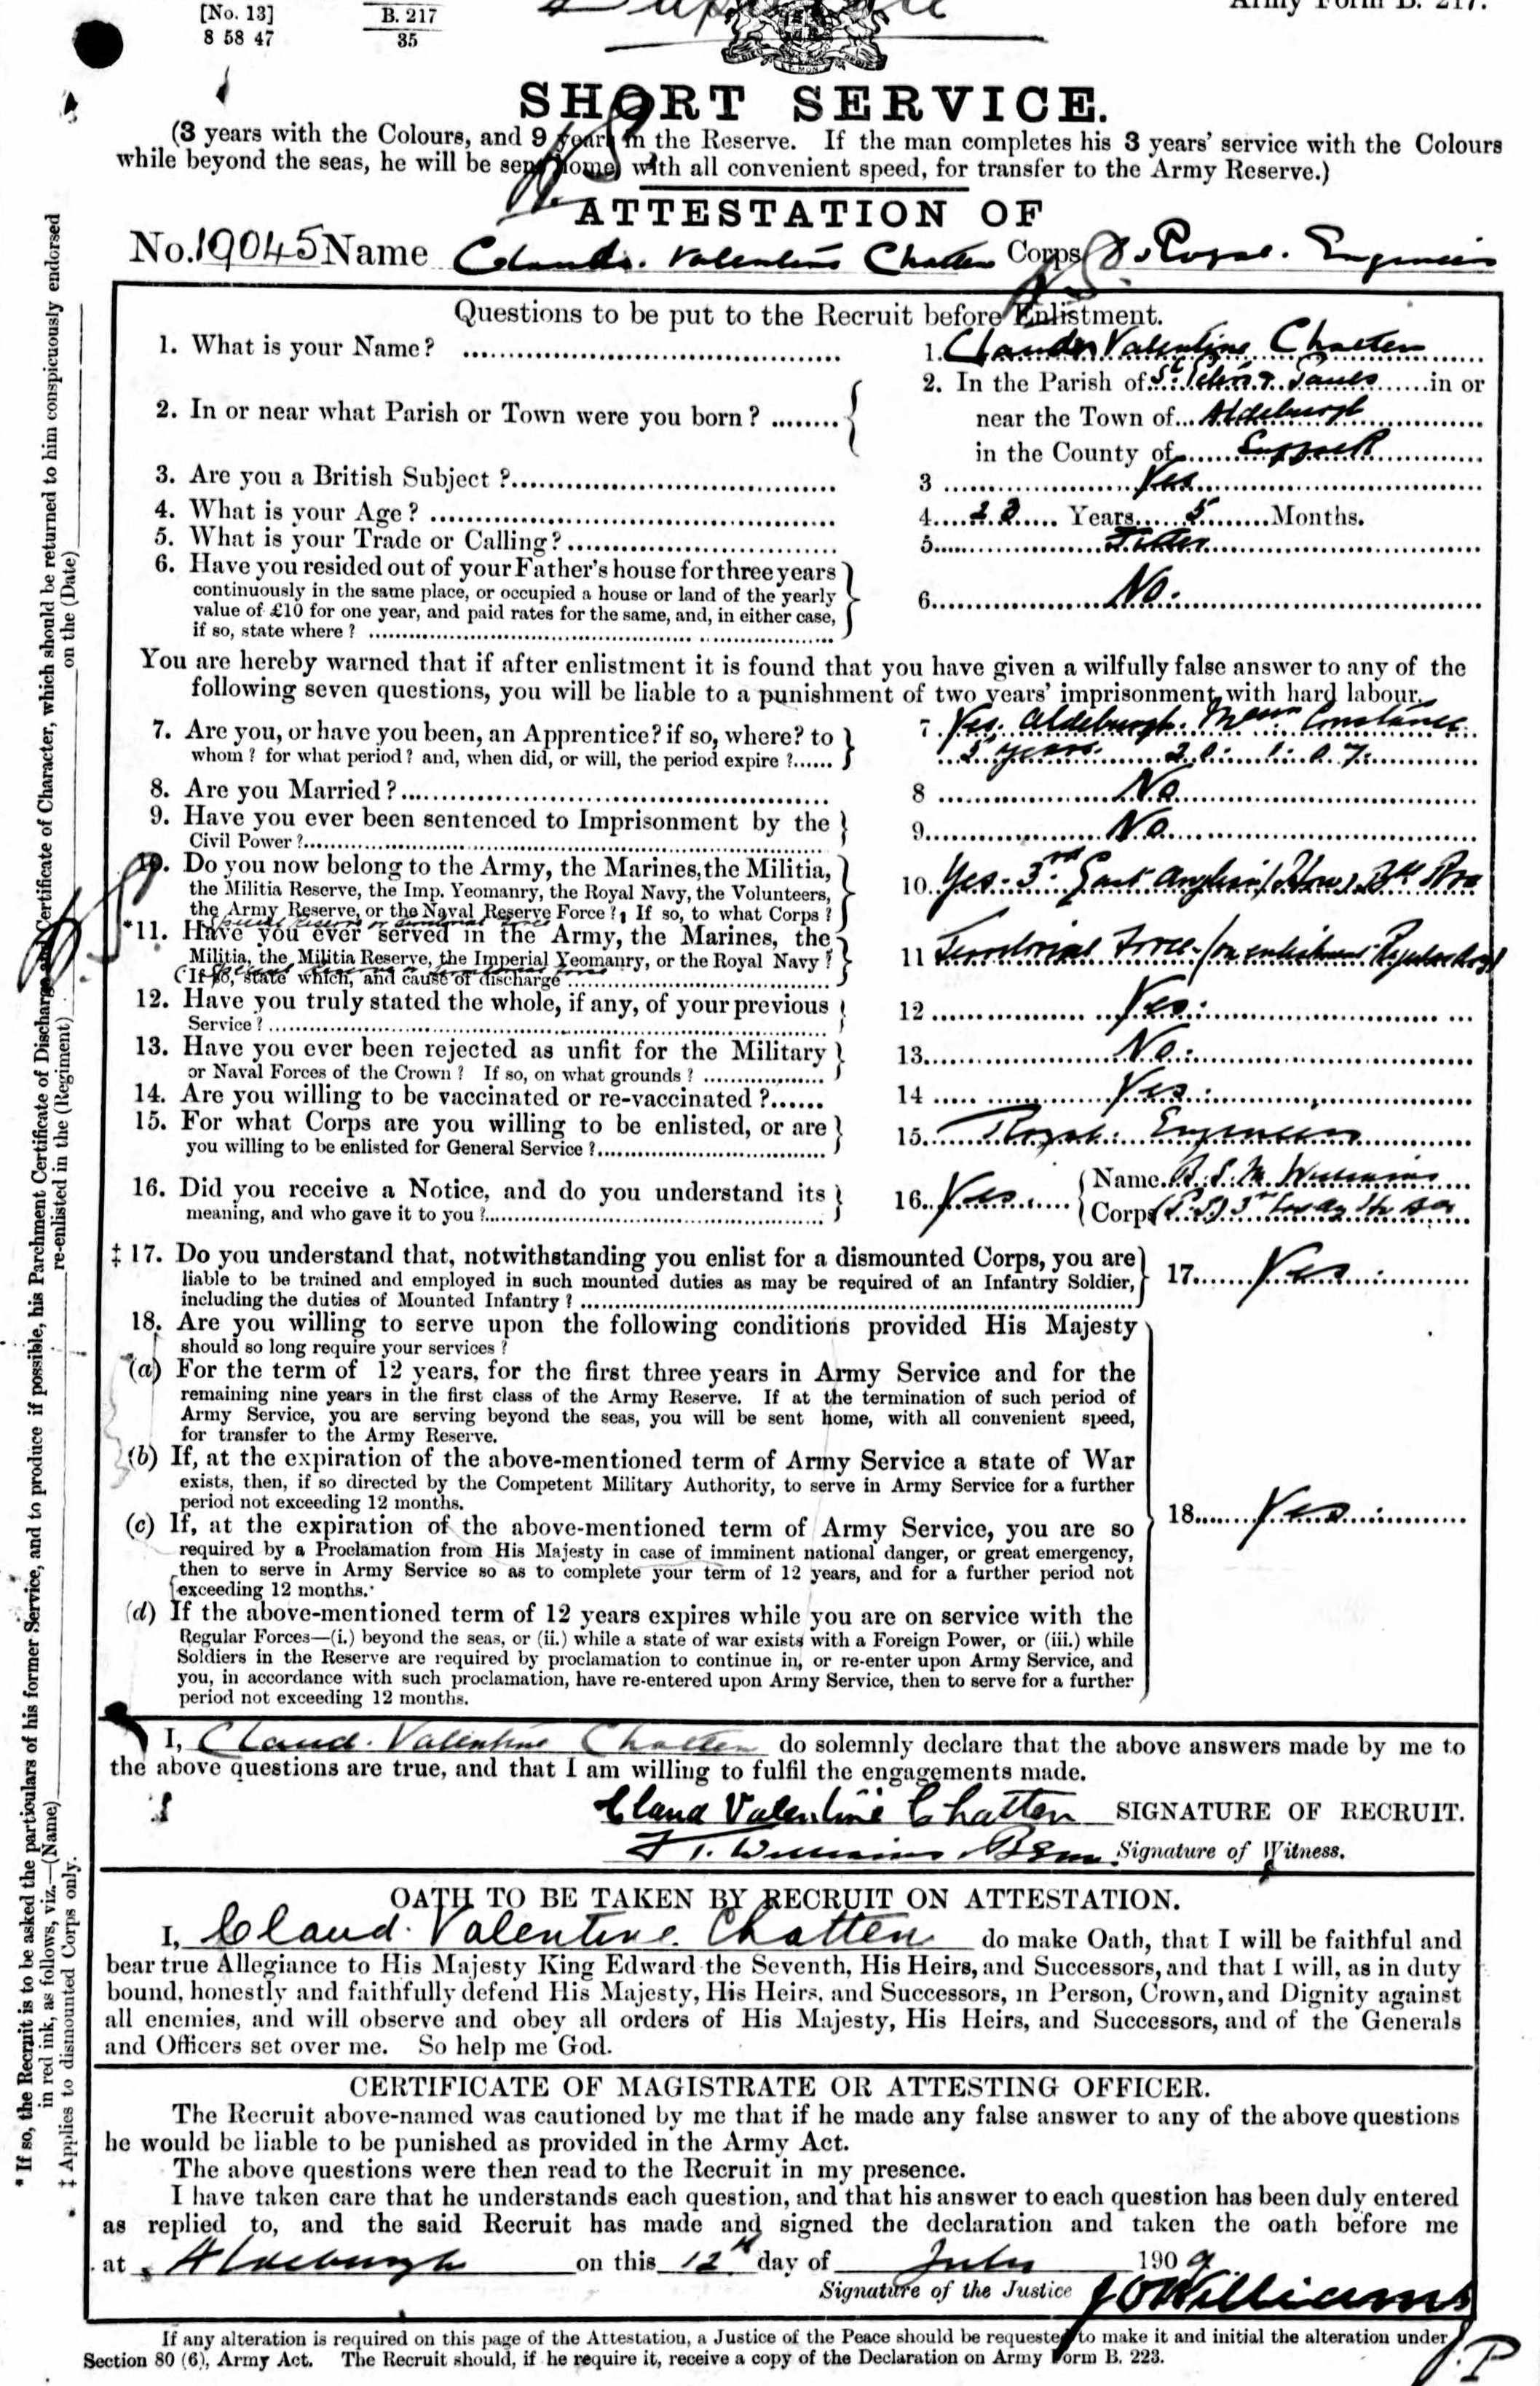 [No. 13]
8 58 47
B. 217
35
Duplicate
Army Form B. 217.
SHORT SERVICE.
(3 years with the Colours, and 9 years in the Reserve. If the man completes his 3 years' service with the Colours
while beyond the seas, he will be sent home, with all convenient speed, for transfer to the Army Reserve.)
ATTESTATION OF
No. 19045 Name Claude Valentine Chatten Corps Royal Engineers
Questions to be put to the Recruit before Enlistment.
1. What is your Name? 1. Claude Valentine Chatten
2. In or near what Parish or Town were you born? 2. In the Parish of St. Peter & Pauls in or
near the Town of Aldeburgh
in the County of Suffolk
3. Are you a British Subject? 3 Yes
4. What is your Age? 4. 23 Years 5 Months.
5. What is your Trade or Calling? 5. Fitter
6. Have you resided out of your Father's house for three years
continuously in the same place, or occupied a house or land of the yearly
value of £10 for one year, and paid rates for the same, and, in either case,
if so, state where? 6. No.
You are hereby warned that if after enlistment it is found that you have given a wilfully false answer to any of the
following seven questions, you will be liable to a punishment of two years' imprisonment with hard labour.
7. Are you, or have you been, an Apprentice? if so, where? to 7. Yes. Aldeburgh.
whom? for what period? and, when did, or will, the period expire? 5 years.
8. Are you Married? 8 No
9. Have you ever been sentenced to Imprisonment by the
Civil Power? 9. No
10. Do you now belong to the Army, the Marines, the Militia,
the Militia Reserve, the Imp. Yeomanry, the Royal Navy, the Volunteers,
the Army Reserve, or the Naval Reserve Force? If so, to what Corps? 10. Yes. 3rd East Anglian (How)
*11. Have you ever served in the Army, the Marines, the
Militia, the Militia Reserve, the Imperial Yeomanry, or the Royal Navy?
(If so, state which, and cause of discharge 11 Territorial Force (on enlistment
12. Have you truly stated the whole, if any, of your previous
Service? 12 Yes.
13. Have you ever been rejected as unfit for the Military
or Naval Forces of the Crown? If so, on what grounds? 13. No.
14. Are you willing to be vaccinated or re-vaccinated? 14 Yes.
15. For what Corps are you willing to be enlisted, or are
you willing to be enlisted for General Service? 15. Royal Engineers
16. Did you receive a Notice, and do you understand its
meaning, and who gave it to you? 16. Yes Name Williams
Corps
‡ 17. Do you understand that, notwithstanding you enlist for a dismounted Corps, you are
liable to be trained and employed in such mounted duties as may be required of an Infantry Soldier,
including the duties of Mounted Infantry? 17. Yes
18. Are you willing to serve upon the following conditions provided His Majesty
should so long require your services?
(a) For the term of 12 years, for the first three years in Army Service and for the
remaining nine years in the first class of the Army Reserve. If at the termination of such period of
Army Service, you are serving beyond the seas, you will be sent home, with all convenient speed,
for transfer to the Army Reserve.
(b) If, at the expiration of the above-mentioned term of Army Service a state of War
exists, then, if so directed by the Competent Military Authority, to serve in Army Service for a further
period not exceeding 12 months.
(c) If, at the expiration of the above-mentioned term of Army Service, you are so
required by a Proclamation from His Majesty in case of imminent national danger, or great emergency,
then to serve in Army Service so as to complete your term of 12 years, and for a further period not
exceeding 12 months.
18. Yes
(d) If the above-mentioned term of 12 years expires while you are on service with the
Regular Forces—(i.) beyond the seas, or (ii.) while a state of war exists with a Foreign Power, or (iii.) while
Soldiers in the Reserve are required by proclamation to continue in, or re-enter upon Army Service, and
you, in accordance with such proclamation, have re-entered upon Army Service, then to serve for a further
period not exceeding 12 months.
I, Claud Valentine Chatten do solemnly declare that the above answers made by me to
the above questions are true, and that I am willing to fulfil the engagements made.
Claud Valentine Chatten SIGNATURE OF RECRUIT.
Williams Signature of Witness.
OATH TO BE TAKEN BY RECRUIT ON ATTESTATION.
I, Claud Valentine Chatten do make Oath, that I will be faithful and
bear true Allegiance to His Majesty King Edward the Seventh, His Heirs, and Successors, and that I will, as in duty
bound, honestly and faithfully defend His Majesty, His Heirs, and Successors, in Person, Crown, and Dignity against
all enemies, and will observe and obey all orders of His Majesty, His Heirs, and Successors, and of the Generals
and Officers set over me. So help me God.
CERTIFICATE OF MAGISTRATE OR ATTESTING OFFICER.
The Recruit above-named was cautioned by me that if he made any false answer to any of the above questions
he would be liable to be punished as provided in the Army Act.
The above questions were then read to the Recruit in my presence.
I have taken care that he understands each question, and that his answer to each question has been duly entered
as replied to, and the said Recruit has made and signed the declaration and taken the oath before me
at Aldeburgh on this 12th day of July 1909.
Signature of the Justice J O Williams
J.P
If any alteration is required on this page of the Attestation, a Justice of the Peace should be requested to make it and initial the alteration under
Section 80 (6), Army Act. The Recruit should, if he require it, receive a copy of the Declaration on Army Form B. 223.
* If so, the Recruit is to be asked the particulars of his former Service, and to produce if possible, his Parchment Certificate of Discharge and Certificate of Character, which should be returned to him conspicuously endorsed
in red ink, as follows, viz.—(Name) re-enlisted in the (Regiment) on the (Date)
‡ Applies to dismounted Corps only.